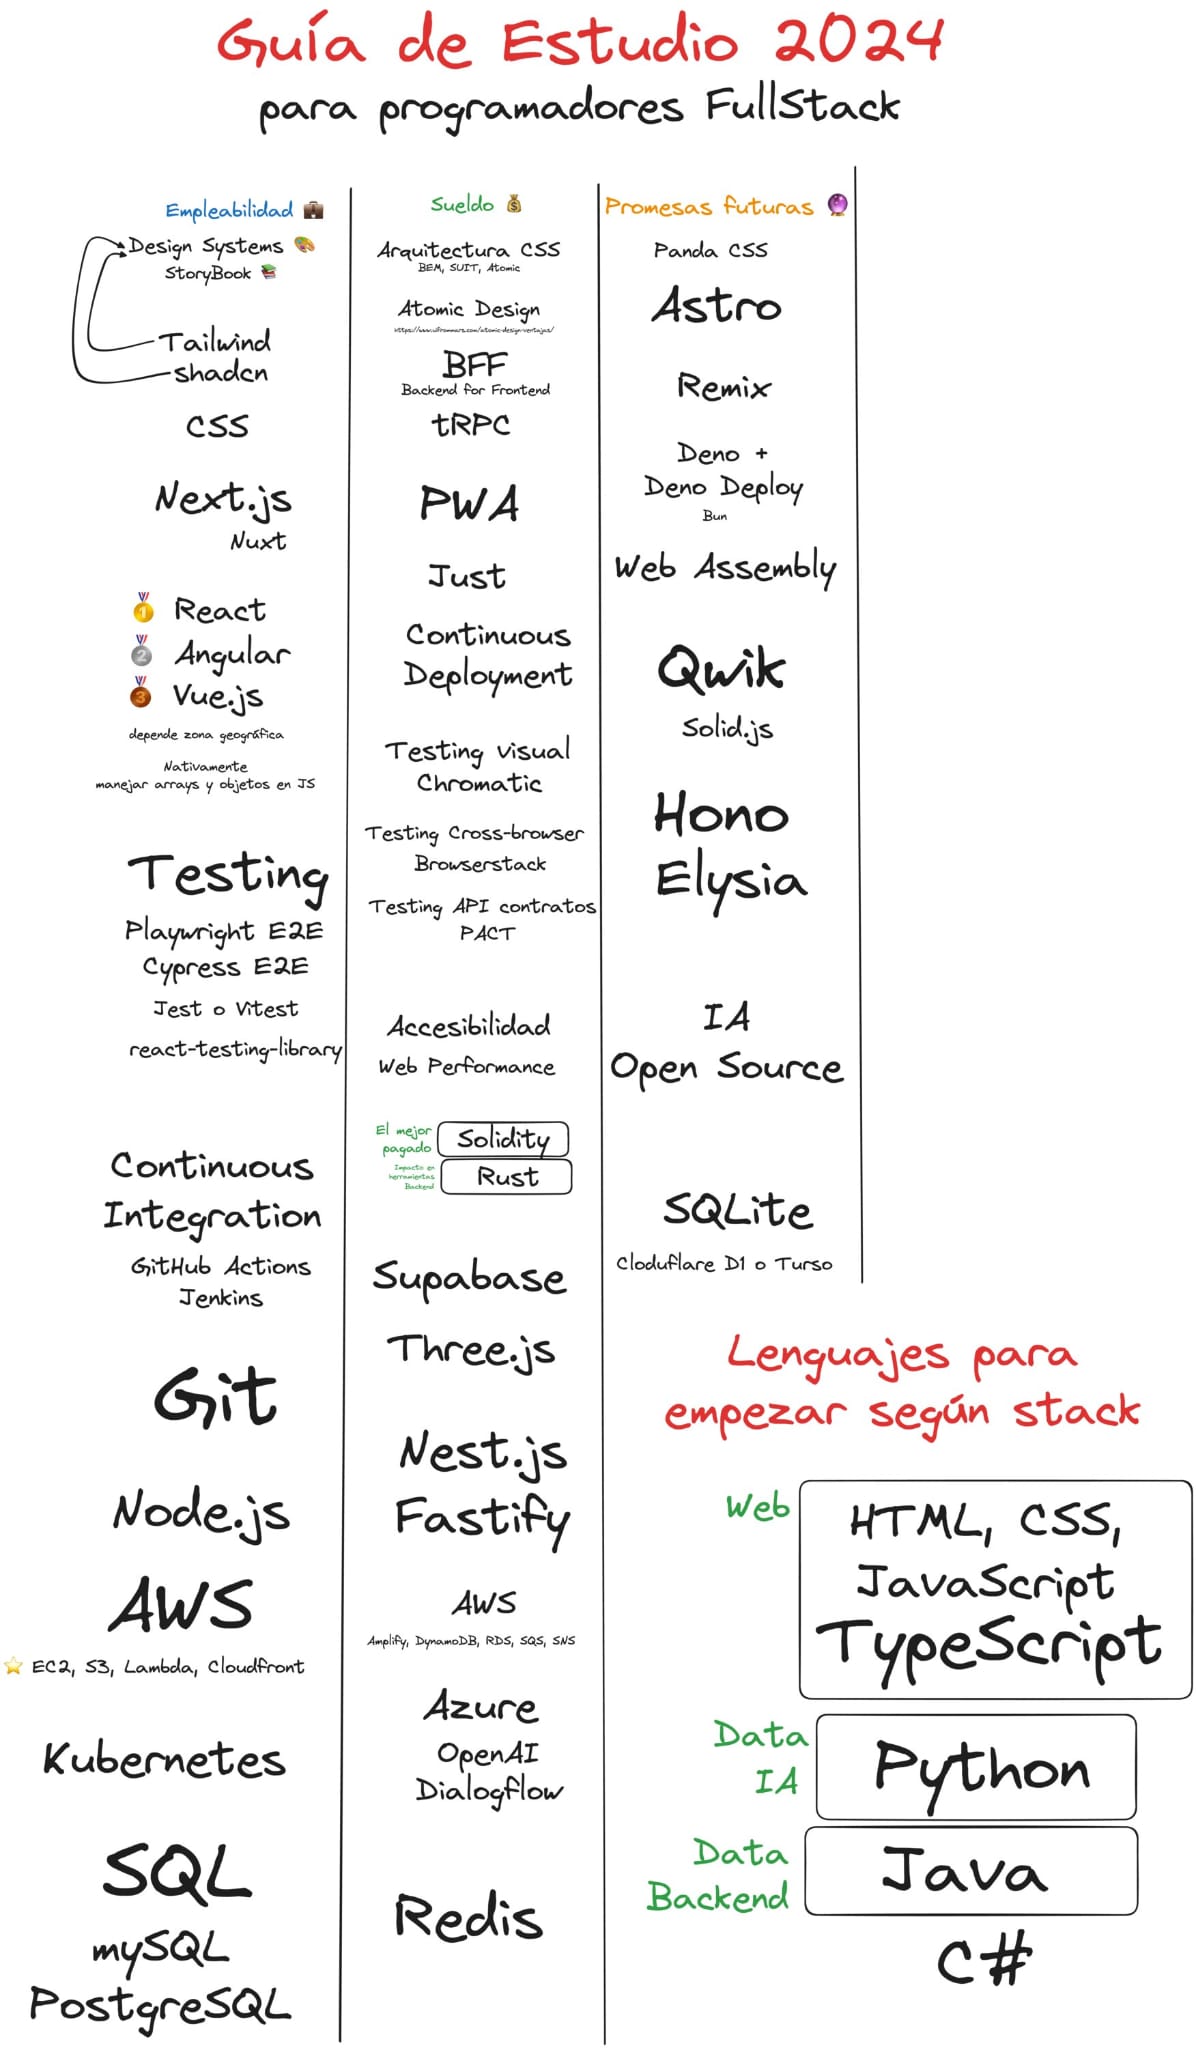 Guía de Estudio 2024
para programadores FullStack
Empleabilidad 💼
Design Systems 🎨
StoryBook 📚
Tailwind
shadcn
CSS
Next.js
Nuxt
🥇 React
🥈 Angular
🥉 Vue.js
depende zona geográfica
Nativamente
manejar arrays y objetos en JS
Testing
Playwright E2E
Cypress E2E
Jest o Vitest
react-testing-library
Continuous
Integration
GitHub Actions
Jenkins
Git
Node.js
AWS
⭐ EC2, S3, Lambda, Cloudfront
Kubernetes
SQL
mySQL
PostgreSQL
Sueldo 💰
Arquitectura CSS
BEM, SUIT, Atomic
Atomic Design
BFF
Backend for Frontend
tRPC
PWA
Just
Continuous
Deployment
Testing visual
Chromatic
Testing Cross-browser
Browserstack
Testing API contratos
PACT
Accesibilidad
Web Performance
El mejor
pagado
Solidity
Impacto en
herramientas
Backend
Rust
Supabase
Three.js
Nest.js
Fastify
AWS
Amplify, DynamoDB, RDS, SQS, SNS
Azure
OpenAI
Dialogflow
Redis
Promesas futuras 🔮
Panda CSS
Astro
Remix
Deno +
Deno Deploy
Bun
Web Assembly
Qwik
Solid.js
Hono
Elysia
IA
Open Source
SQLite
Cloduflare D1 o Turso
Lenguajes para
empezar según stack
Web
HTML, CSS,
JavaScript
TypeScript
Data
IA
Python
Data
Backend
Java
C#